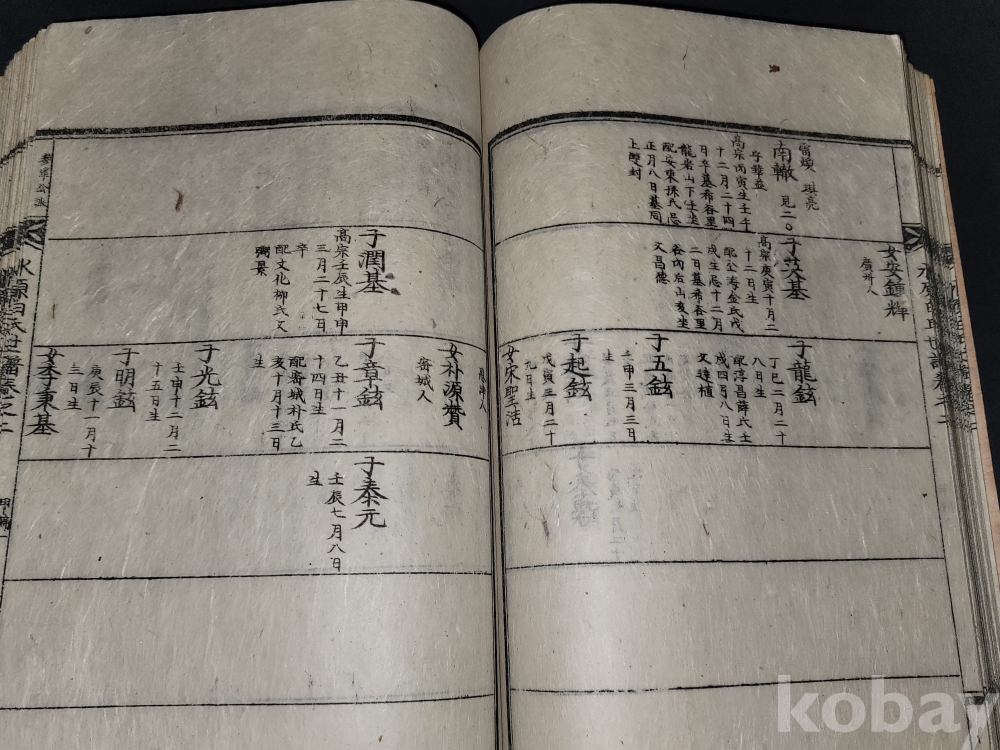 南轍 見二〇
字華益
高宗丙寅生壬午
十二月二十四
日卒墓希谷里
龍岩山下壬坐
配安東孫氏忌
正月八日墓同
上雙封
女安鍾輝
廣州人
子茨基
高宗庚寅十月二
十二日生
配金海金氏戊
戌生忌十二月
二日墓希谷里
谷內后山亥坐
父昌德
子龍鉉
丁巳二月二十
八日生
配淳昌薛氏壬
戌四月八日生
父達植
子五鉉
壬申三月三日
生
子起鉉
戊寅三月二十
九日生
女宋聖活
子潤基
高宗壬辰生甲申
三月二十七日
卒
配文化柳氏父
女朴源贊
密城人
子章鉉
乙丑十一月二
十四日生
配密城朴氏乙
亥十月十三日
生
子光鉉
壬申十二月二
十五日生
子明鉉
庚辰十一月十
三日生
女李秉基
子泰元
壬辰七月八日
生
水原白氏世譜卷之二
kobay